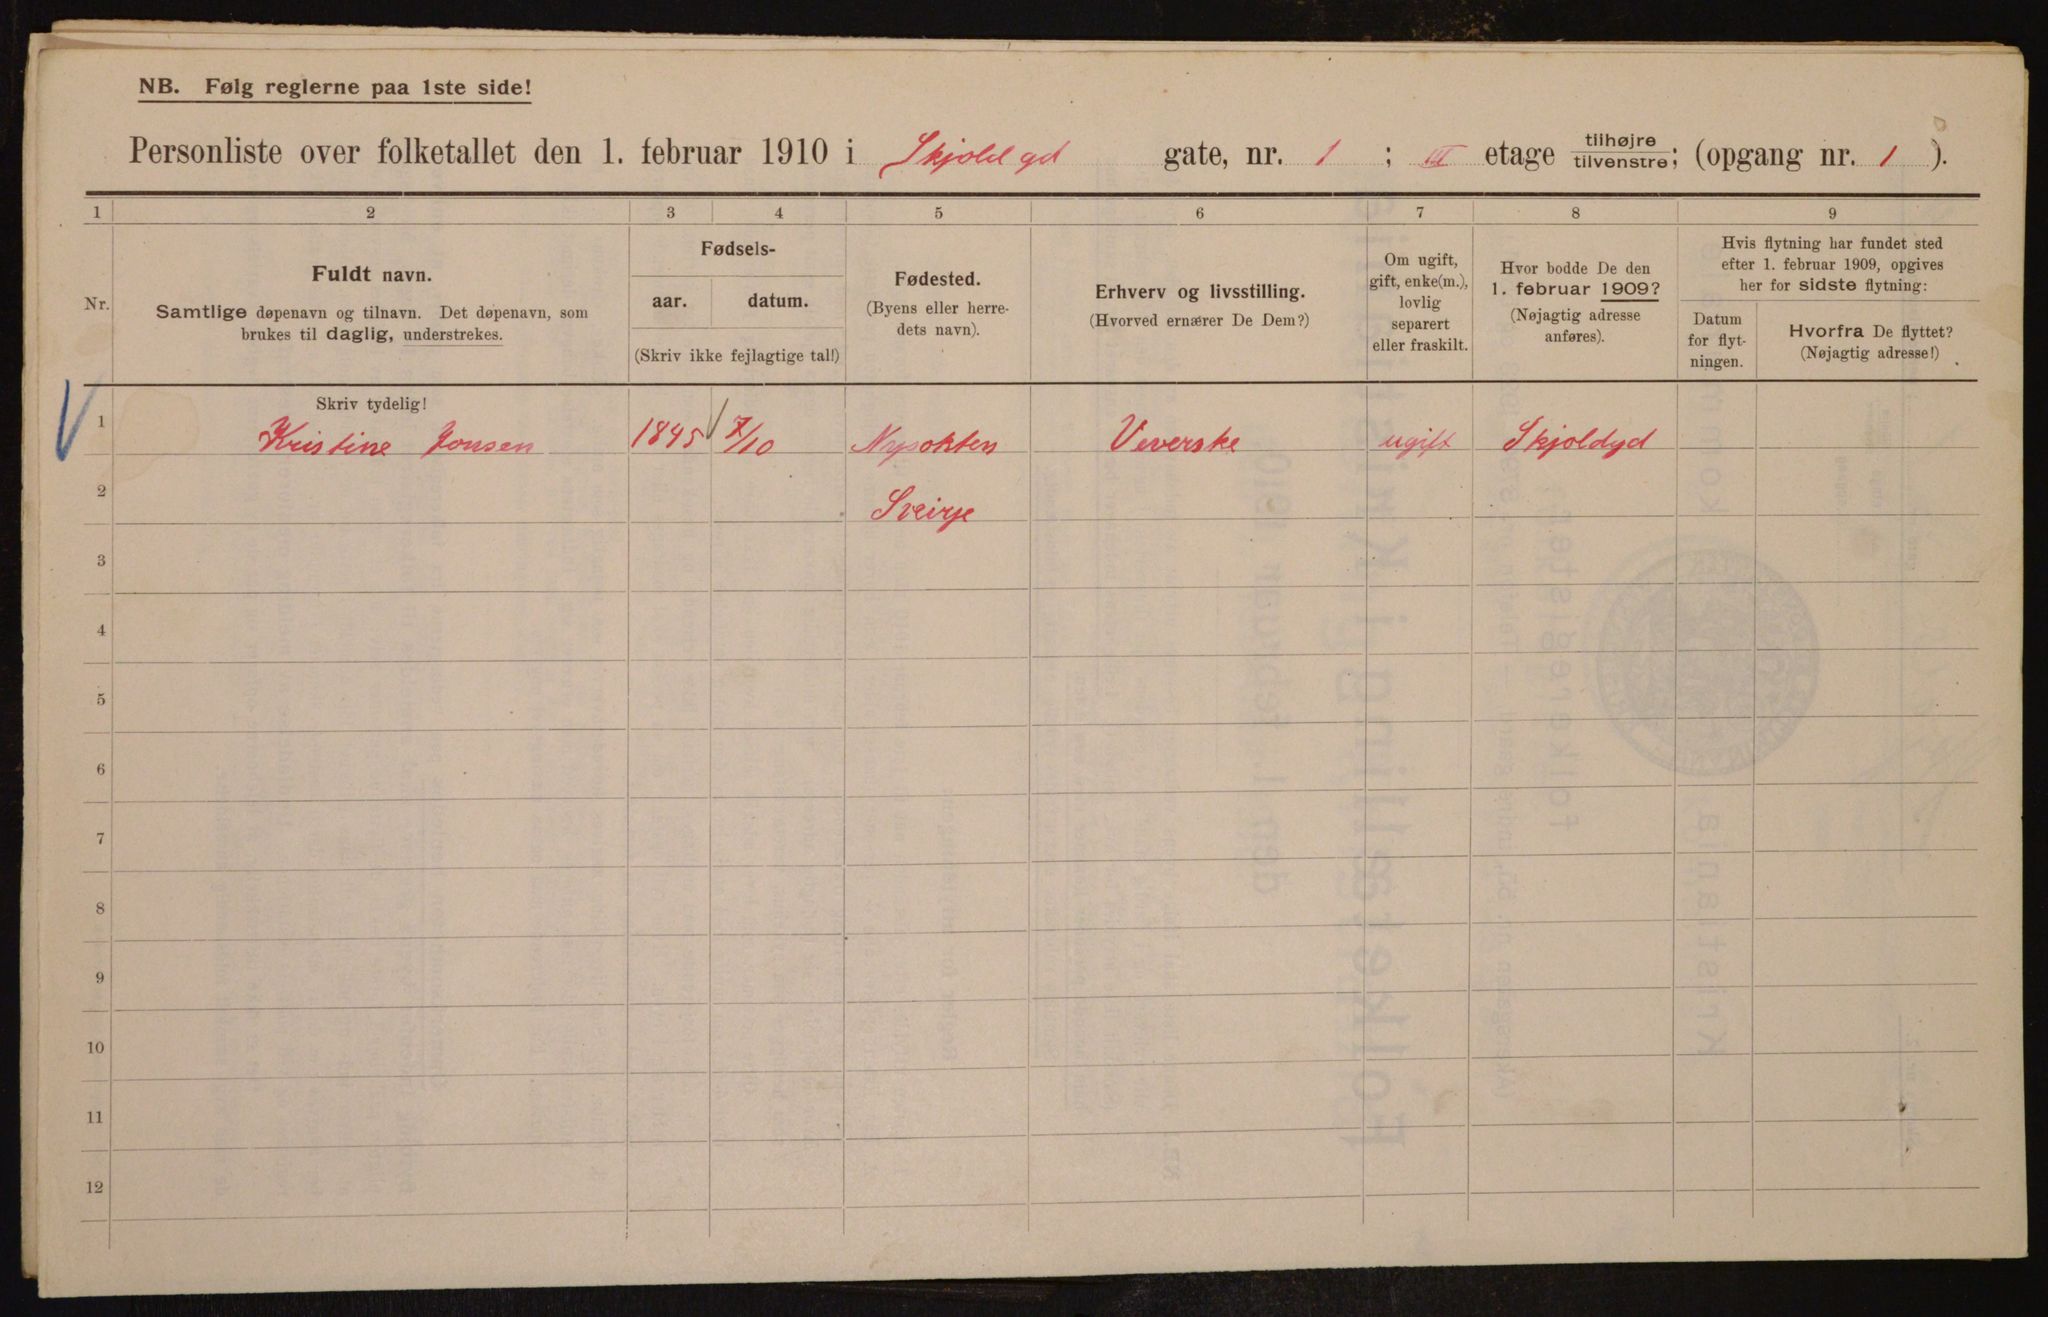 NB. Følg reglerne paa 1ste side!
Personliste over folketallet den 1. februar 1910 i Skjold gd gate, nr. 1 ; III etage tilhøjre tilvenstre; (opgang nr. 1 ).
1 2 3 4 5 6 7 8 9
Nr.
Fuldt navn.
Samtlige døpenavn og tilnavn. Det døpenavn, som
brukes til daglig, understrekes.
Fødsels-
aar. datum.
(Skriv ikke fejlagtige tal!)
Fødested.
(Byens eller herre-
dets navn).
Erhverv og livsstilling.
(Hvorved ernærer De Dem?)
Om ugift,
gift, enke(m.),
lovlig
separert
eller fraskilt.
Hvor bodde De den
1. februar 1909?
(Nøjagtig adresse
anføres).
Hvis flytning har fundet sted
efter 1. februar 1909, opgives
her for sidste flytning:
Datum
for flyt-
ningen.
Hvorfra De flyttet?
(Nøjagtig adresse!)
Skriv tydelig!
1 Kristine Jonsen 1845 7/10 Veverske ugift Skjoldgd
2
3
4
5
6
7
8
9
10
11
12